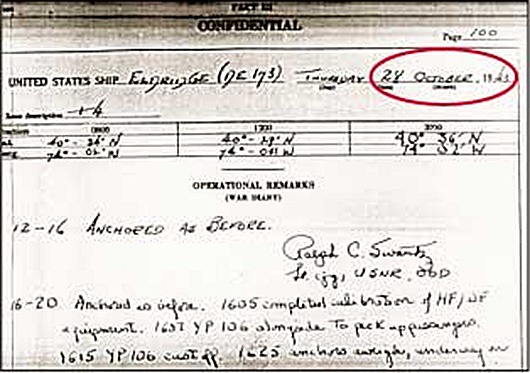 PART III
CONFIDENTIAL
Page 100
UNITED STATES SHIP ELDRIDGE (DE 173) THURSDAY 28 OCTOBER, 1943
(Day) (Date) (Month)
Zone description +4
0800 1200 2000
40° - 36' N 40° - 40° 36' N
74° - 02' W 74° - 74° 02' W
OPERATIONAL REMARKS
(WAR DIARY)
12-16 ANCHORED AS BEFORE.
Ralph C. Swantz
USNR, OOD
16-20 Anchored as before. 1605 completed calibration of HF/DF
equipment. YP 106 alongside to pick up passengers.
1615 YP 106 cast off. 1625 anchors aweigh, underway in